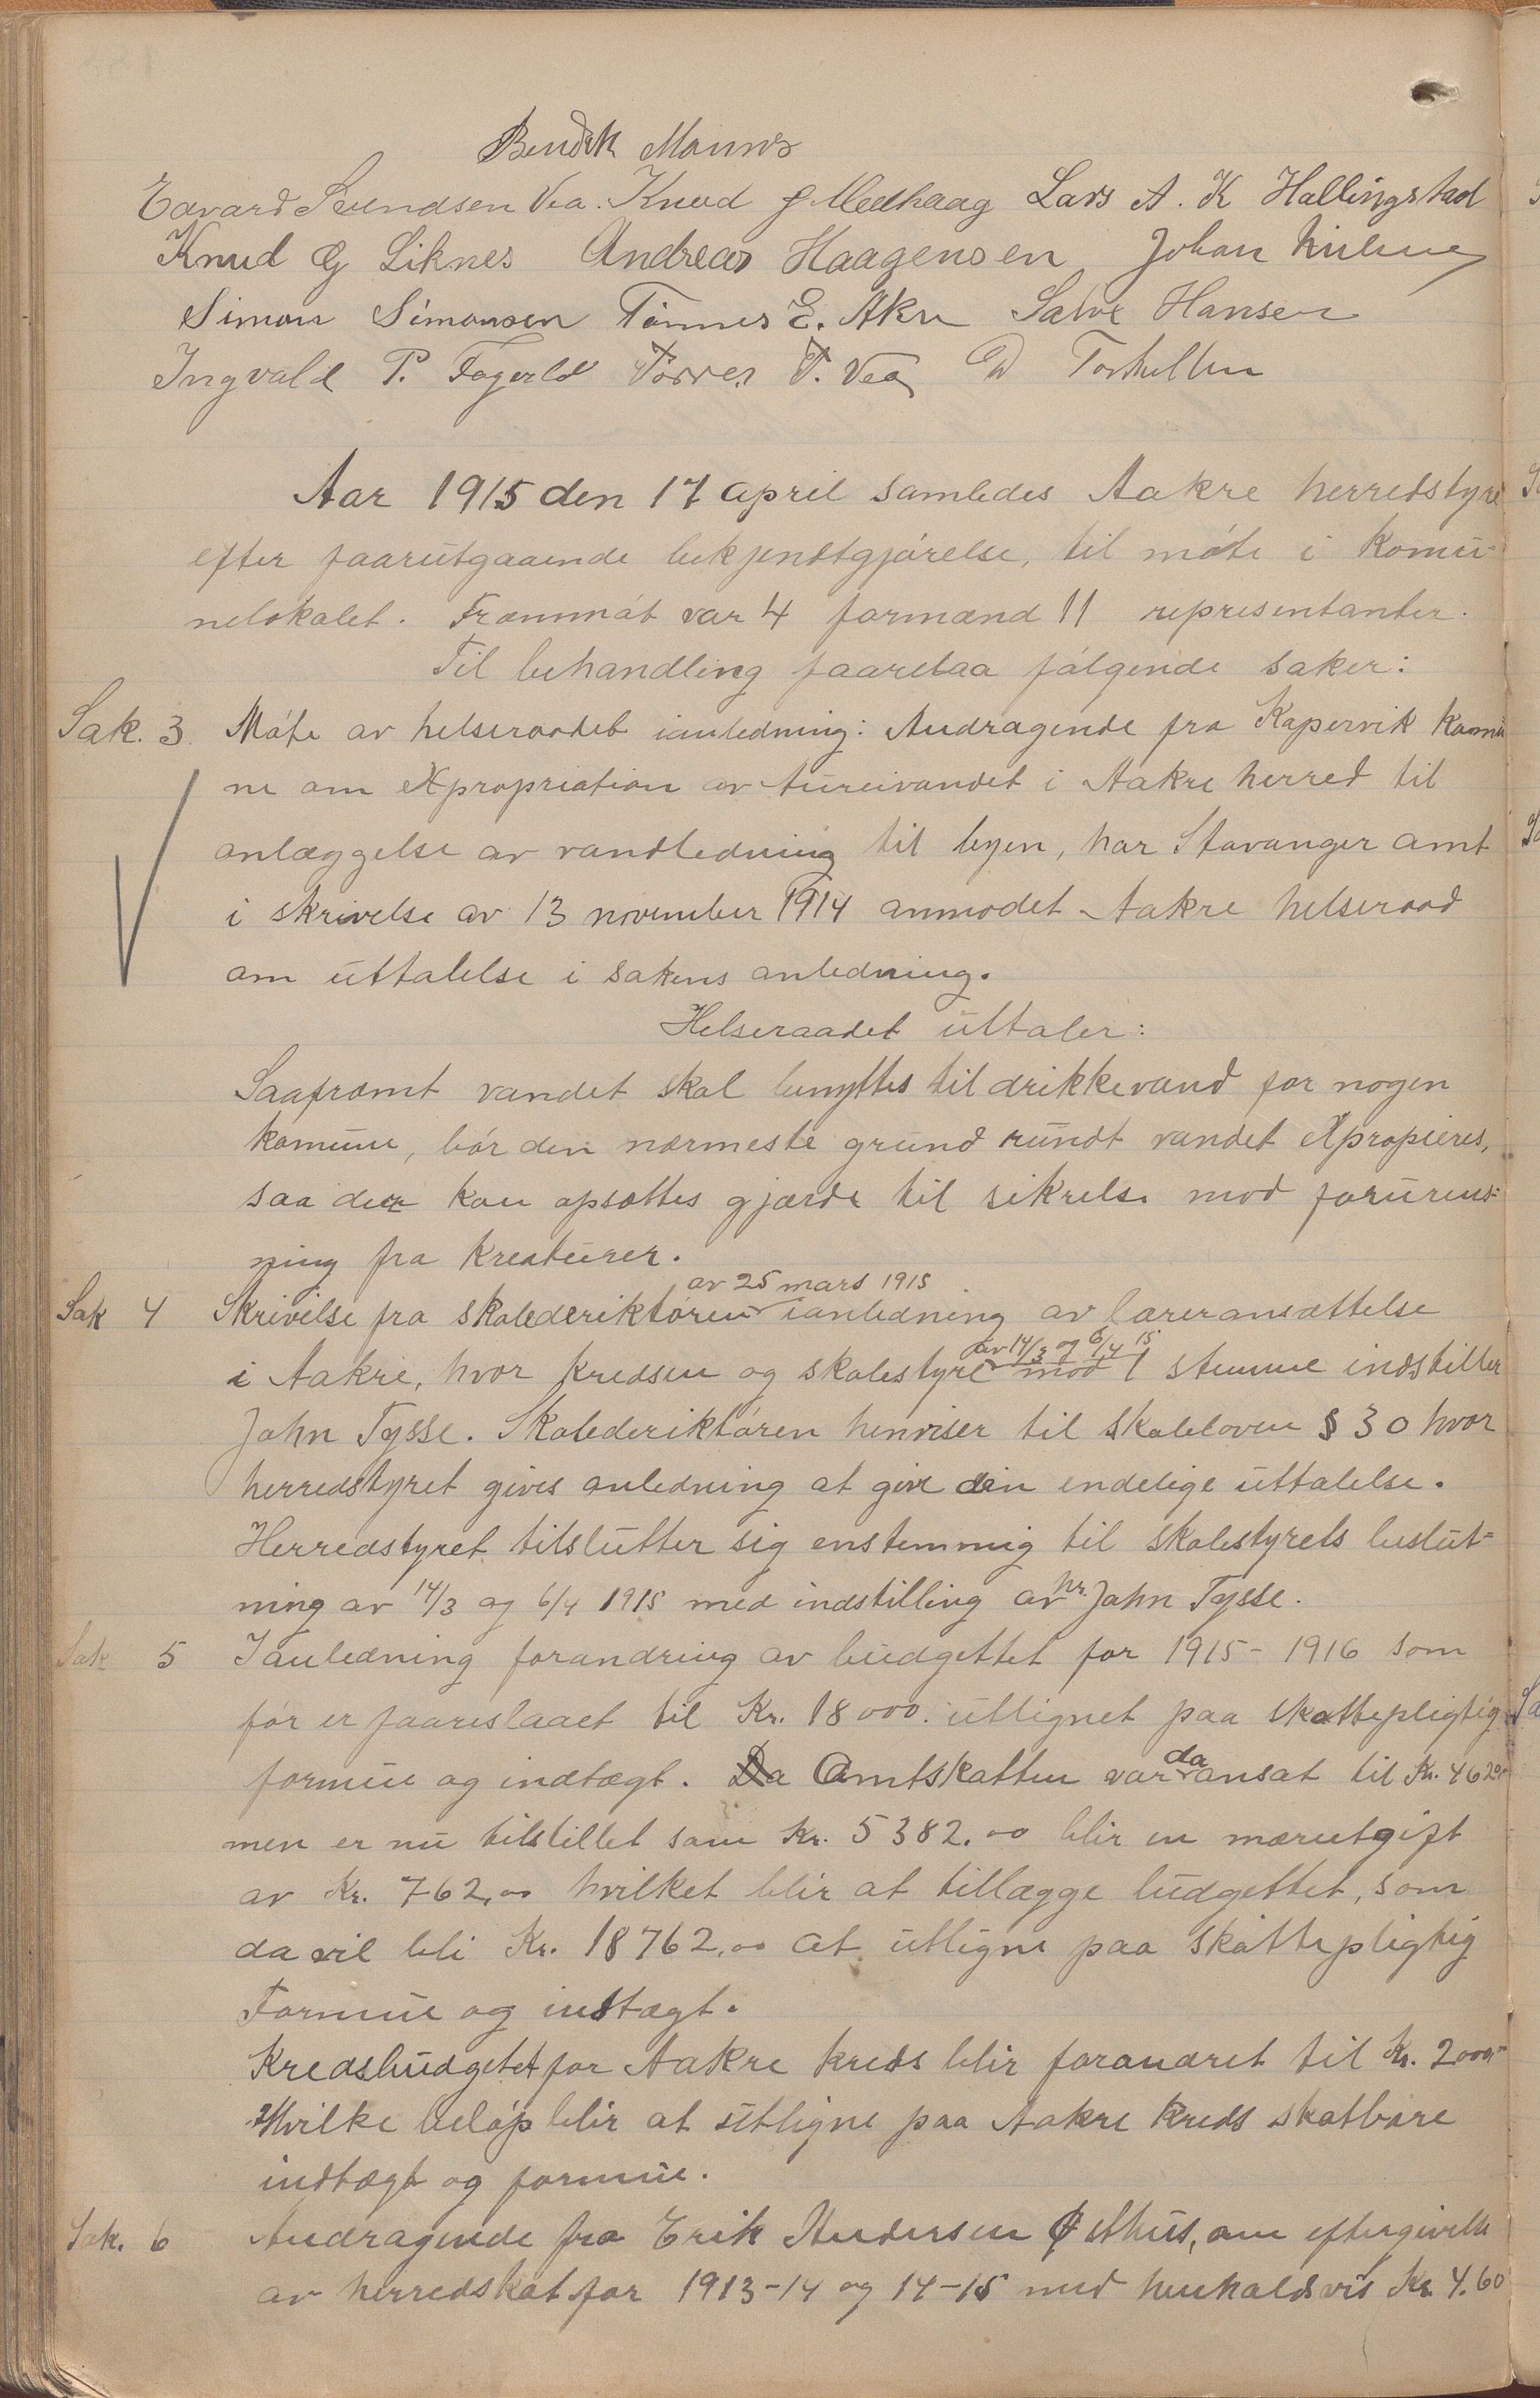 Bendik Mannes
Edvard Svendsen Vea. Knud J Medhaug Lars A. K Hallingstad
Knud G Liknes Andreas Haagensen Johan
Simon Simonsen Tönnes E. Akre Salve Hansen
Ingvald P. Fagerld Torres T. Vea Torkellsen
Aar 1915 den 17 april samledes Aakre herredstyre
efter faarutgaaende bekjendtgjörelse, til möte i Komu-
nelokalet. Frammöt var 4 formænd 11 representanter.
Til behandling faarelaa følgende saker:
Sak. 3. Möte av helseraadet ianledning: Andragende fra Kapervik Komu
ne om Expropriation av tureivandet i Aakre herred til
anlæggelse av vandledning til byen, har Stavanger amt
i skrivelse av 13 november 1914 anmodet Aakre helseraad
om uttalelse i sakens anledning.
Helseraadet uttaler:
Saaframt vandet skal benyttes til drikkevand for nogen
komune, bör den nærmeste grund rundt vandet Expropieres,
saa der kan opsættes gjærde til sikrelse mod forurens-
ning fra Kreaturer.
av 25 mars 1915
Sak 4 Skrivelse fra skolederiktören ianledning av læreransættelse
av 14/3 og 6/4 15
i Aakre, hvor kredsen og skolestyre mod 1 stemme indstiller
John Tysse. Skolederiktören henviser til skoleloven § 30 hvor
herredstyret gives anledning at give den endelige uttalelse.
Herredstyret tilslutter sig enstemmig til skolestyrets beslut-
ning av 14/3 og 6/4 1915 med indstilling av hr. John Tysse.
Sak 5 Ianledning forandring av budgettet for 1915-1916 som
för er faareslaaet til Kr. 18000. utlignet paa skattepligtig
formue og indtægt. Da Amtskatten var da ansat til Kr. 4620
men er nu tilstillet som Kr. 5382.00 blir en merutgift
av Kr. 762,00 hvilket blir at tillægge budgettet, som
da vil bli Kr. 18762,00 at utligne paa skattepligtig
Formue og indtægt.
Kredsbudgetet for Aakre kreds blir forandret til Kr. 2000
Hvilke belöp blir at utligne paa Aakre Kreds skatbare
indtægt og formue.
Sak. 6 Andragende fra Erik Andersen Østhus, om eftergivelse
av herredskat for 1913-14 og 14-15 med henholdsvis Kr. 4.60